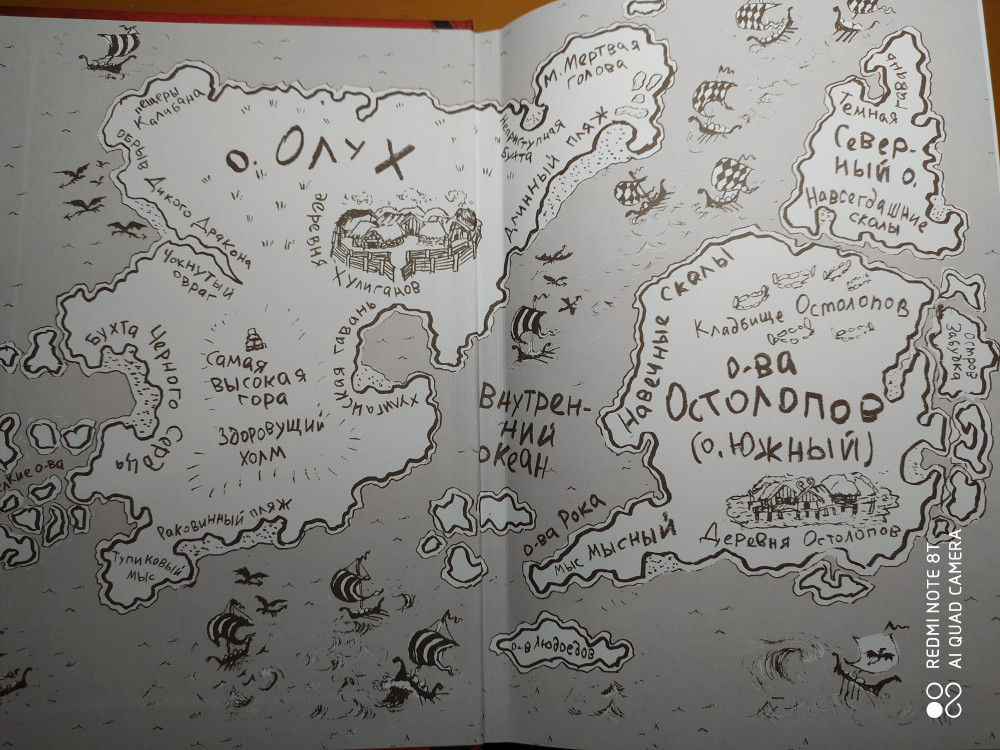 пещеры
Калибана
обрыв Дикого Дракона
о. Олух
деревня
Хулиганов
Чокнутый
овраг
Бухта Черного Сердца
самая
высокая
гора
Здоровущий
холм
Хулиганская гавань
о-ва
Раковинный пляж
Тупиковый
мыс
м. Мертвая
голова
Неприступная
бухта
длинный пляж
Внутрен-
ний
океан
о-ва Рока
мыс Мысный
о-в людоедов
Темная
гавань
Север-
ный о.
Навсегдашние
скалы
Навечные скалы
Кладбище Остолопов
о-ва
Остолопов
(о. Южный)
Деревня Остолопов
Остров
Забудка
REDMI NOTE 8T
AI QUAD CAMERA